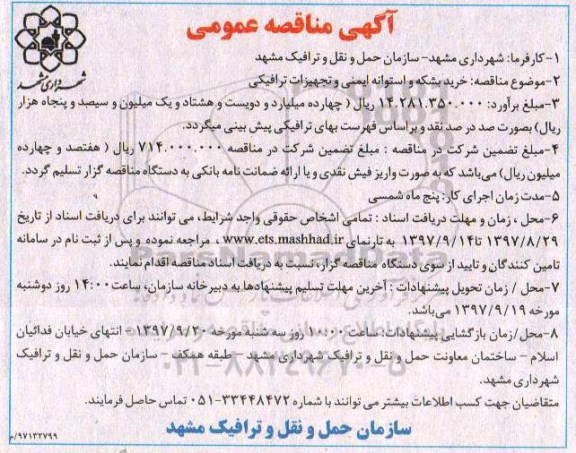 آگهی مناقصه عمومی
شهرداری مشهد
۱-کارفرما: شهرداری مشهد- سازمان حمل و نقل و ترافیک مشهد
۲-موضوع مناقصه: خرید بشکه و استوانه ایمنی و تجهیزات ترافیکی
۳-مبلغ برآورد: ۱۴.۲۸۱.۳۵۰.۰۰۰ ریال ( چهارده میلیارد و دویست و هشتاد و یک میلیون و سیصد و پنجاه هزار
ریال) بصورت صد در صد نقد و براساس فهرست بهای ترافیکی پیش بینی میگردد.
۴-مبلغ تضمین شرکت در مناقصه : مبلغ تضمین شرکت در مناقصه ۷۱۴.۰۰۰.۰۰۰ ریال ( هفتصد و چهارده
میلیون ریال) می‌باشد که به صورت واریز فیش نقدی و یا ارائه ضمانت نامه بانکی به دستگاه مناقصه گزار تسلیم گردد.
۵-مدت زمان اجرای کار: پنج ماه شمسی
۶-محل ، زمان و مهلت دریافت اسناد : تمامی اشخاص حقوقی واجد شرایط، می توانند برای دریافت اسناد از تاریخ
۱۳۹۷/۸/۲۹ تا ۱۳۹۷/۹/۱۴ به تارنمای www.ets.mashhad.ir ، مراجعه نموده و پس از ثبت نام در سامانه
تامین کنندگان و تایید از سوی دستگاه مناقصه گزار، نسبت به دریافت اسناد مناقصه اقدام نمایند.
۷-محل / زمان تحویل پیشنهادات : آخرین مهلت تسلیم پیشنهادها به دبیرخانه سازمان، ساعت ۱۴:۰۰ روز دوشنبه
مورخه ۱۳۹۷/۹/۱۹ می‌باشد.
۸-محل/زمان بازگشایی پیشنهادات: ساعت ۱۰:۰۰ روز سه شنبه مورخه ۱۳۹۷/۹/۲۰- انتهای خیابان فدائیان
اسلام - ساختمان معاونت حمل و نقل و ترافیک شهرداری مشهد - طبقه همکف - سازمان حمل و نقل و ترافیک
شهرداری مشهد.
متقاضیان جهت کسب اطلاعات بیشتر می توانند با شماره ۳۳۴۴۸۴۷۲-۰۵۱ تماس حاصل فرمایند.
سازمان حمل و نقل و ترافیک مشهد
۹۷۱۳۲۷۹۹/م